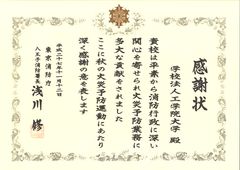 感謝状
学校法人工学院大学 殿
貴校は平素から消防行政に深い
関心を寄せられ火災予防業務に
多大な貢献をされました
ここに秋の火災予防運動にあたり
深く感謝の意を表します
平成二十七年十一月十三日
東京消防庁
八王子消防署長 浅川 修